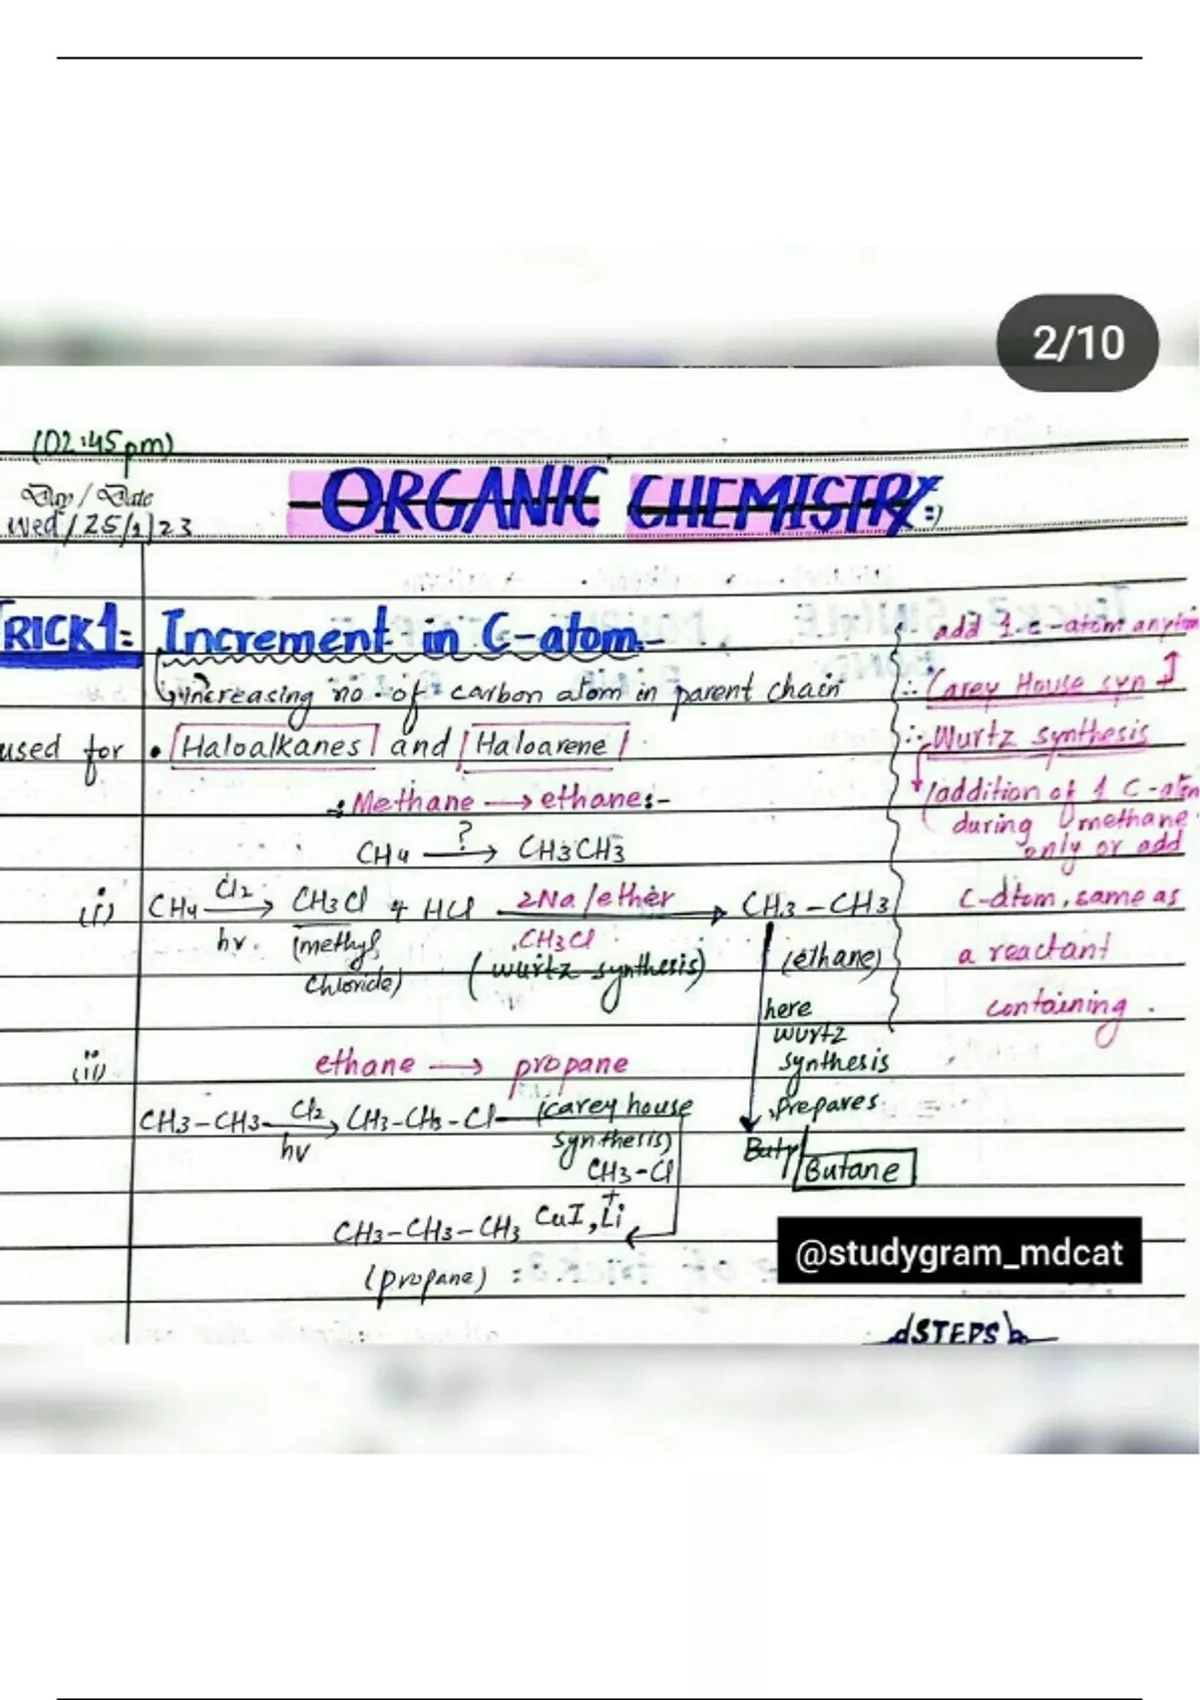 2/10
(02:45pm)
Day / Date
Wed / 25/1/23
ORGANIC CHEMISTRY:)
TRICK1: Increment in C-atom:-
↳ increasing no. of carbon atom in parent chain
used for • Haloalkanes and Haloarene
:Methane → ethane:-
CH4 ? → CH3CH3
(i) CH4 Cl2 → hv CH3Cl + HCl 2Na/ether → CH3-CH3
(methyl chloride)
CH3Cl
(wurtz synthesis)
(ethane)
here
wurtz
synthesis
Prepares
Buty Butane
(ii) ethane → propane
CH3-CH3 Cl2 → hv CH3-CH3-Cl (carey house
synthesis)
CH3-Cl
+
CH3-CH3-CH3 CuI, Li
(propane)
add 1 c-atom anytim
∴ Carey House syn
∴ Wurtz synthesis
(addition of 1 C-atm
during methane
only or add
C-atom, same as
a reactant
containing.
@studygram_mdcat
STEPS